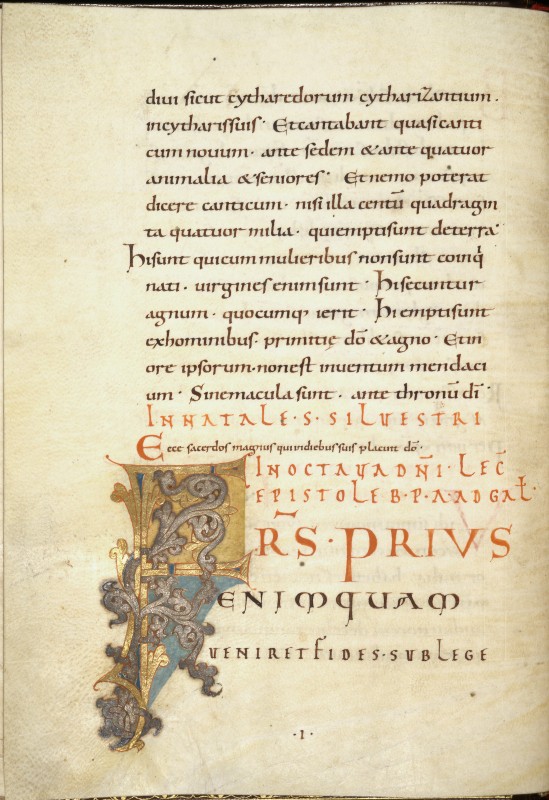 diui sicut cytharedorum cytharizantium.
incytharissuis· Etcantabant quasicanti
cum nouum· ante sedem &ante quatuor
animalia &seniores· Etnemo poterat
dicere canticum· nisi illa centū quadragin
ta quatuor milia· quiemptisunt deterra·
Hisunt quicum mulieribus nonsunt coinq̇
nati· uirgines enimsunt· Hisecuntur
agnum· quocumq; ierit· Hi emptisunt
exhominibus· primitię dō &agno· Etin
ore ipsorum· nonest inuentum mendaci
um· Sinemacula sunt· ante thronū dī
INNATALE·S·SILUESTRI
Ecce sacerdos magnus quiindiebussuis placuit dō·
INOCTAUADÑI·LEC̄
EPISTOLEB·P·AADGAL̄
FR̄S·PRIUS
ENIMQUAM
UENIRETFIDES·SUBLEGE
·I·